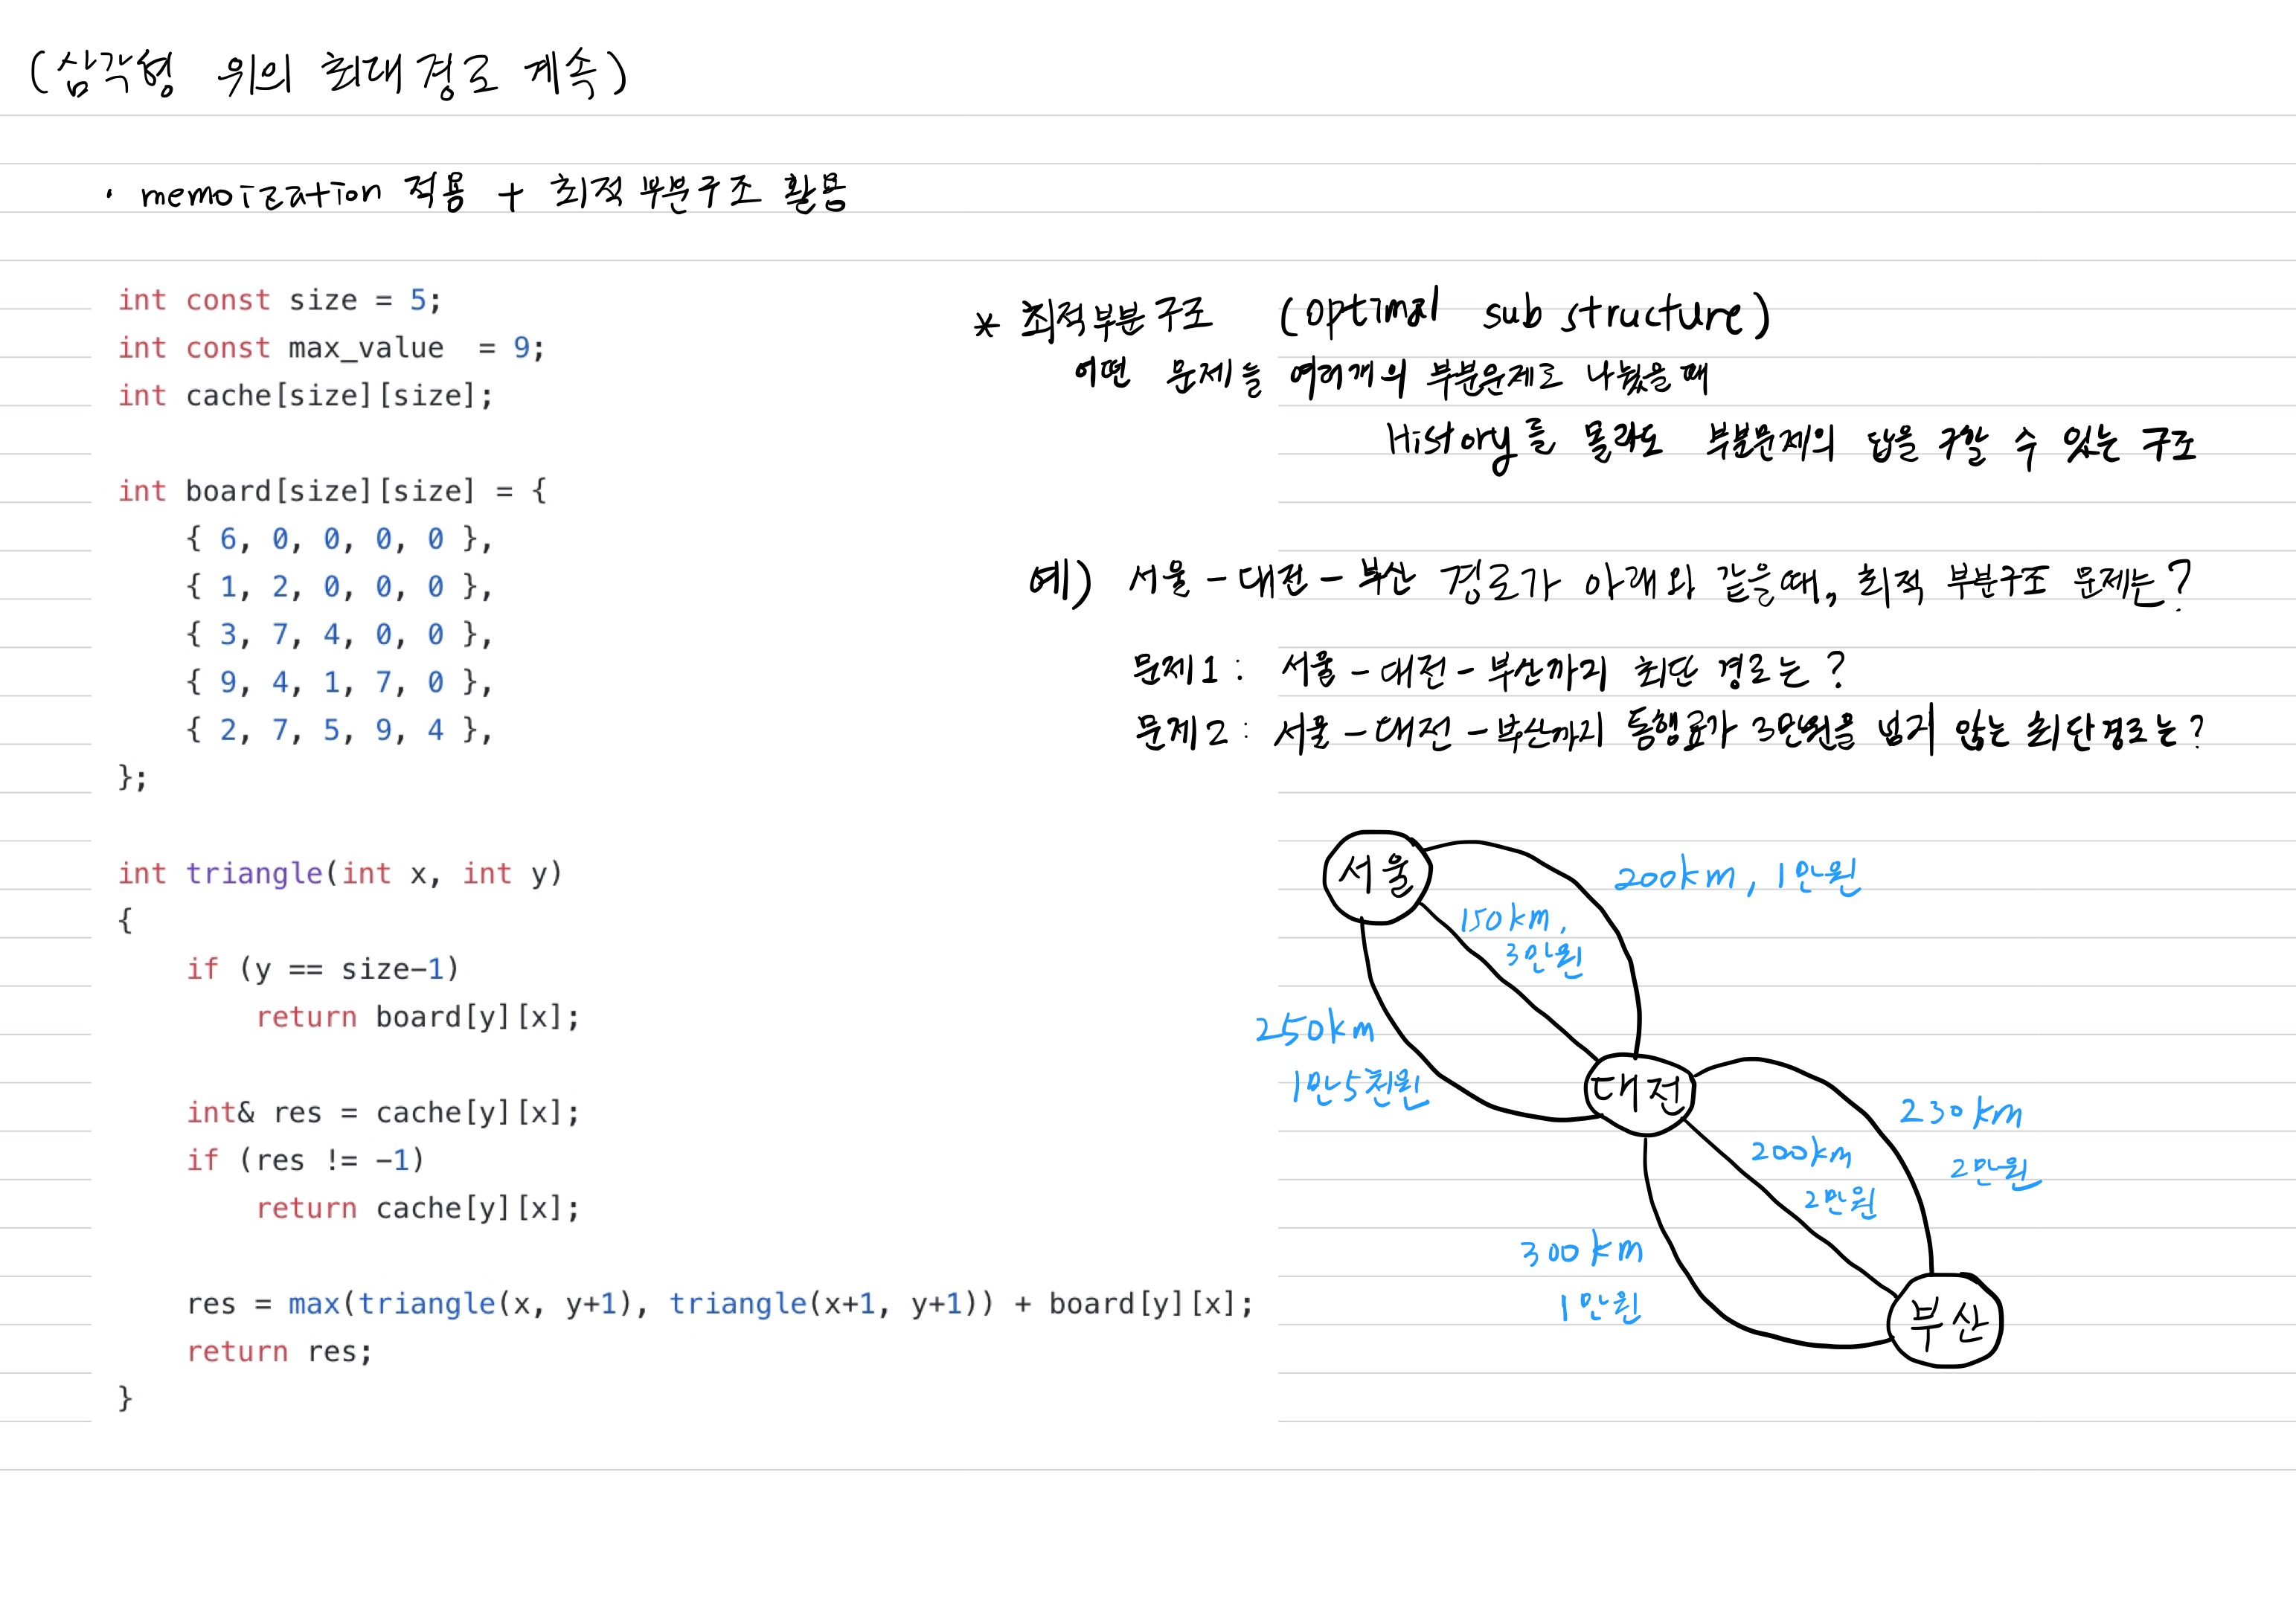 (삼각형 위의 최대경로 계속)
· memoization 적용 + 최적 부분구조 활용
int const size = 5;
int const max_value  = 9;
int cache[size][size];
int board[size][size] = {
    { 6, 0, 0, 0, 0 },
    { 1, 2, 0, 0, 0 },
    { 3, 7, 4, 0, 0 },
    { 9, 4, 1, 7, 0 },
    { 2, 7, 5, 9, 4 },
};
int triangle(int x, int y)
{
    if (y == size-1)
        return board[y][x];
    int& res = cache[y][x];
    if (res != -1)
        return cache[y][x];
    res = max(triangle(x, y+1), triangle(x+1, y+1)) + board[y][x];
    return res;
}
* 최적부분구조 (optimal sub structure)
어떤 문제를 여러개의 부분문제로 나눴을 때
History를 몰라도 부분문제의 답을 구할 수 있는 구조
예) 서울-대전-부산 경로가 아래와 같을때, 최적 부분구조 문제는?
문제1: 서울-대전-부산까지 최단 경로는?
문제2: 서울-대전-부산까지 통행료가 3만원을 넘지 않는 최단경로는?
서울
200km, 1만원
150km,
3만원
250km
1만5천원
대전
230km
2만원
200km
2만원
300km
1만원
부산